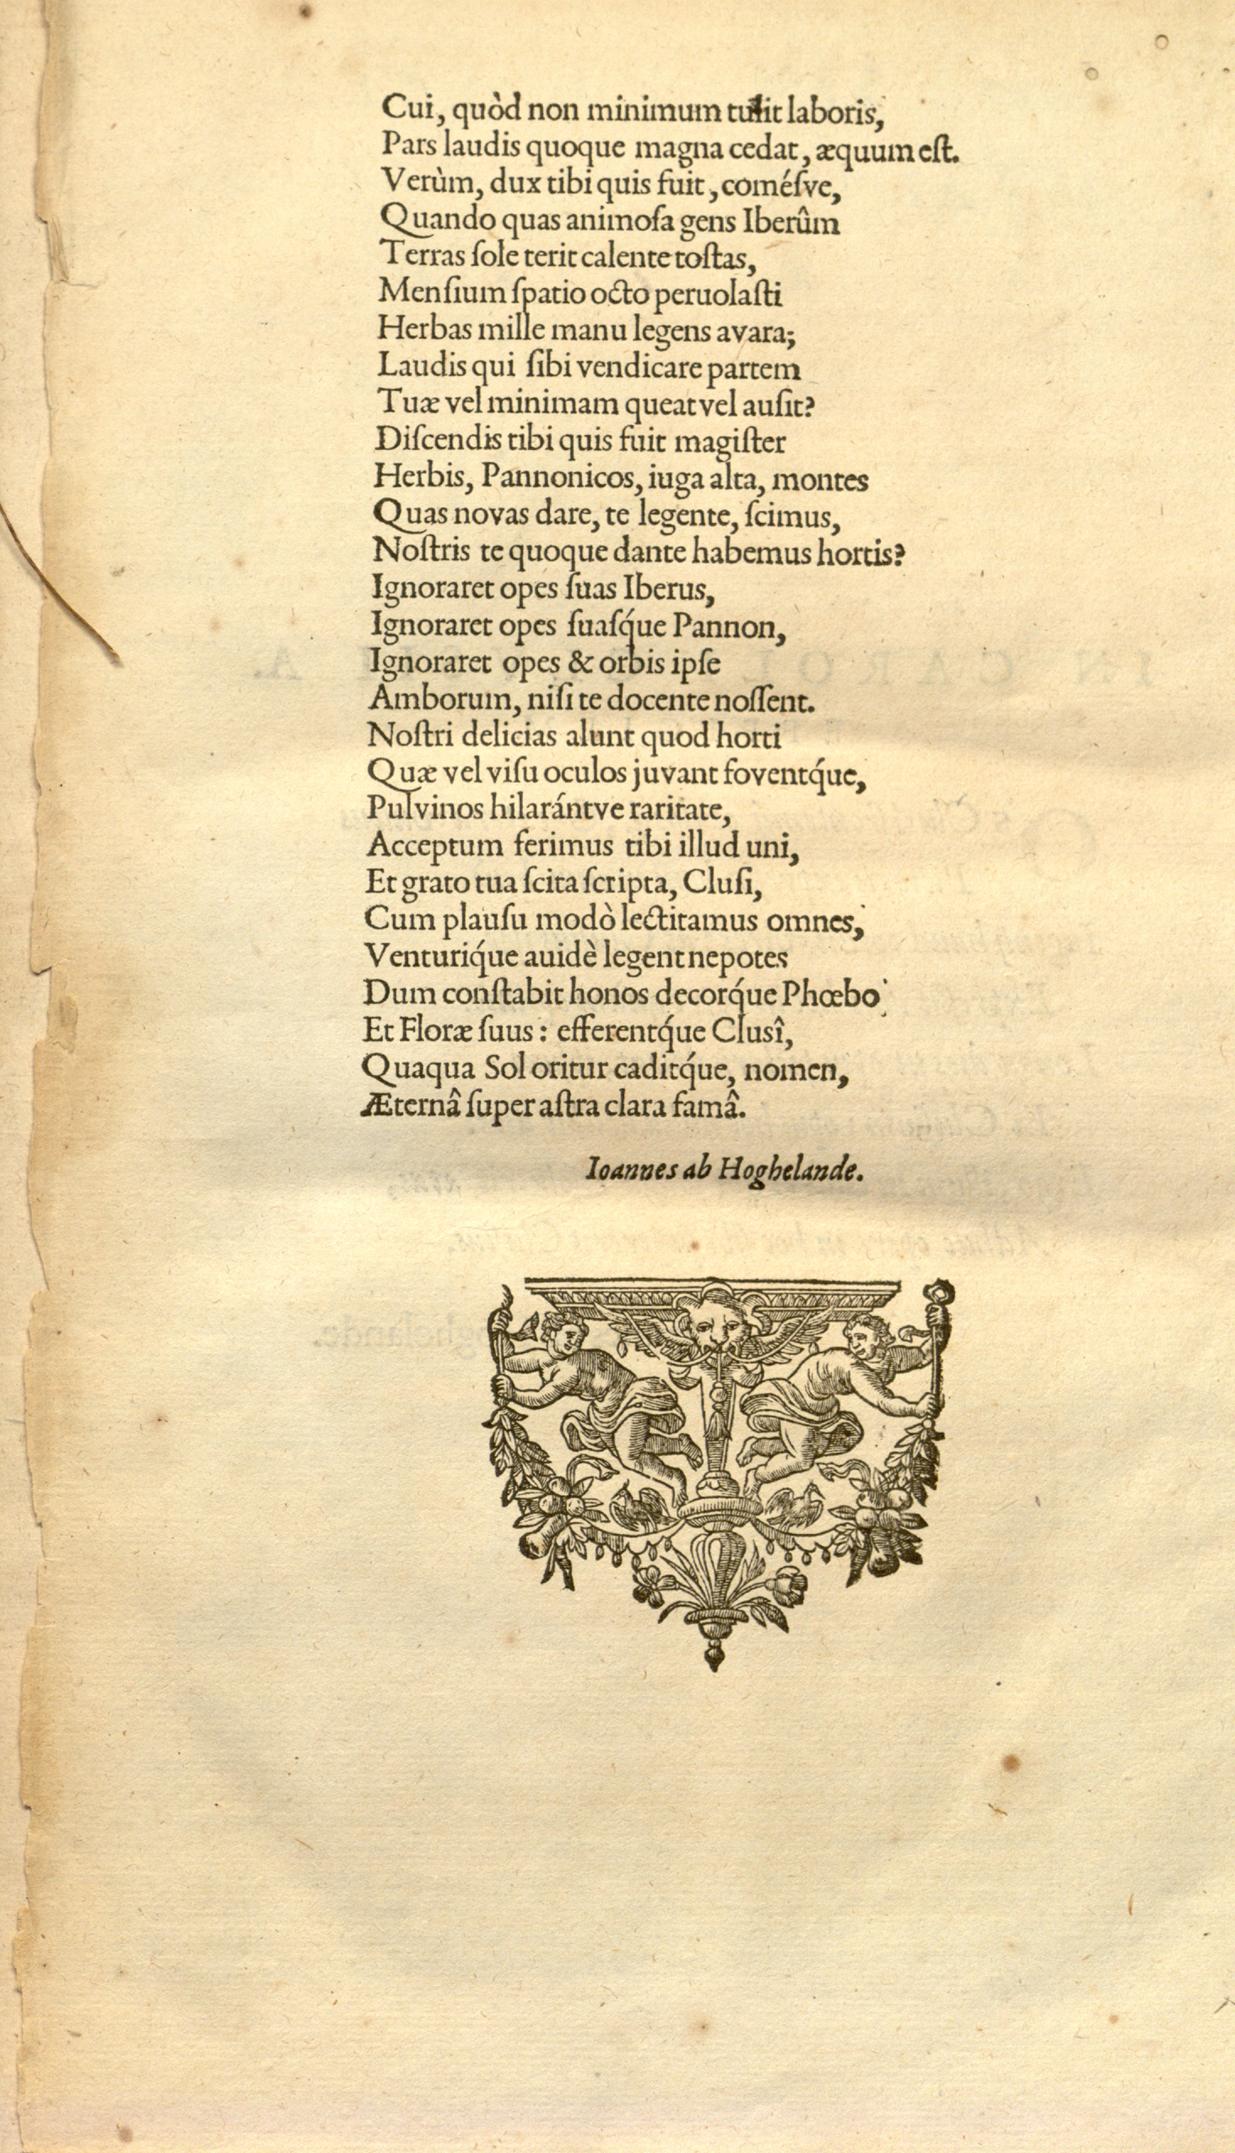 Cui, quòd non minimum tulit laboris,
Pars laudis quoque magna cedat, æquum eſt.
Verùm, dux tibi quis fuit, coméſve,
Quando quas animoſa gens Iberûm
Terras ſole terit calente toſtas,
Menſium ſpatio octo peruolaſti
Herbas mille manu legens avara;
Laudis qui ſibi vendicare partem
Tuæ vel minimam queat vel auſit?
Diſcendis tibi quis fuit magiſter
Herbis, Pannonicos, iuga alta, montes
Quas novas dare, te legente, ſcimus,
Noſtris te quoque dante habemus hortis?
Ignoraret opes ſuas Iberus,
Ignoraret opes ſuaſq́ue Pannon,
Ignoraret opes & orbis ipſe
Amborum, niſi te docente noſſent.
Noſtri delicias alunt quod horti
Quæ vel viſu oculos juvant foventq́ue,
Pulvinos hilarántve raritate,
Acceptum ferimus tibi illud uni,
Et grato tua ſcita ſcripta, Cluſi,
Cum plauſu modò lectitamus omnes,
Venturiq́ue auidè legent nepotes
Dum conſtabit honos decorq́ue Phœbo
Et Floræ ſuus: efferentq́ue Cluſî,
Quaqua Sol oritur caditq́ue, nomen,
Æternâ ſuper aſtra clara famâ.
Ioannes ab Hoghelande.